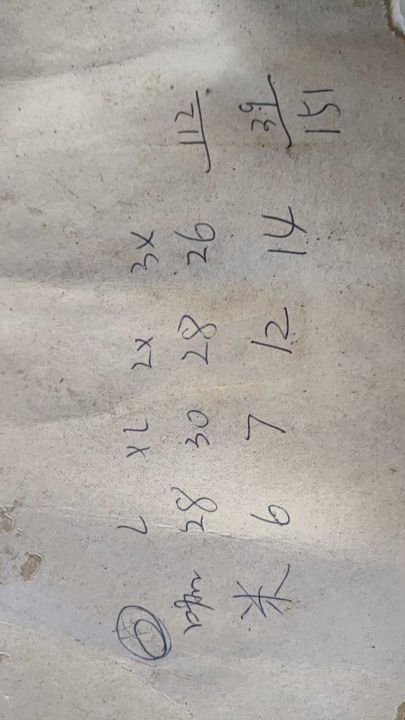 L XL 2X 3X
28 30 28 26 112
米 6 7 12 14 39
151